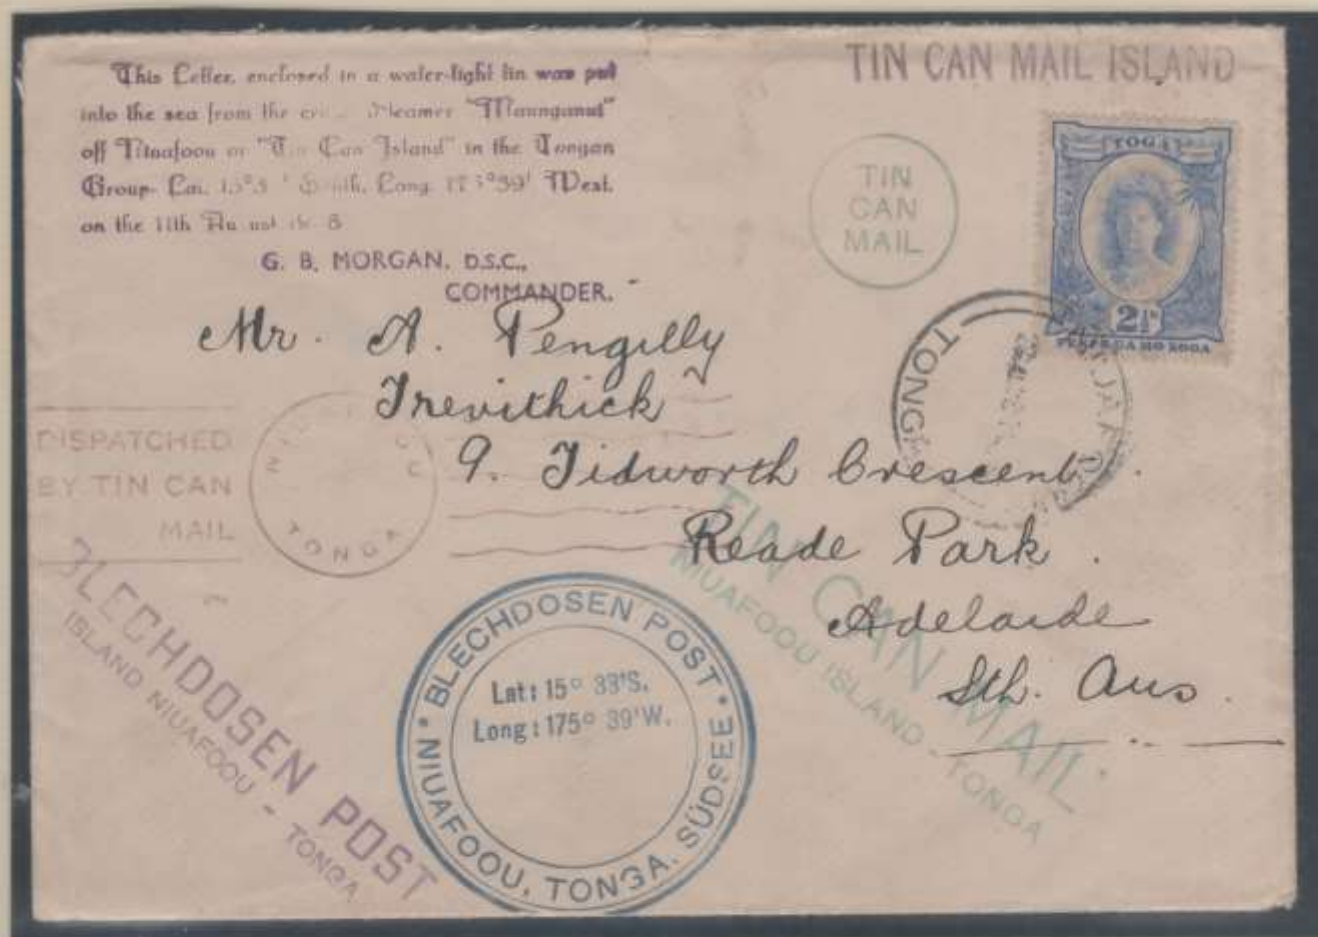 This Letter, enclosed in a water-tight tin was put
into the sea from the Steamer "Maunganui"
off Niuafoou or "Tin Can Island" in the Tongan
Group- South, Long. West.
on the 11th
G. B. MORGAN, D.S.C.,
COMMANDER.
TIN CAN MAIL ISLAND
TIN
CAN
MAIL
TOGA
2½
TONGA
Mr. A. Pengilly
Trevithick
9. Tidworth Crescent.
Reade Park.
Adelaide
Sth. Aus.
DISPATCHED
BY TIN CAN
MAIL
TONGA
BLECHDOSEN POST
ISLAND NIUAFOOU - TONGA
* BLECHDOSEN POST *
NIUAFOOU, TONGA, SÜDSEE
Lat: 15° 33'S.
Long: 175° 39'W.
TIN CAN MAIL
NIUAFOOU ISLAND - TONGA